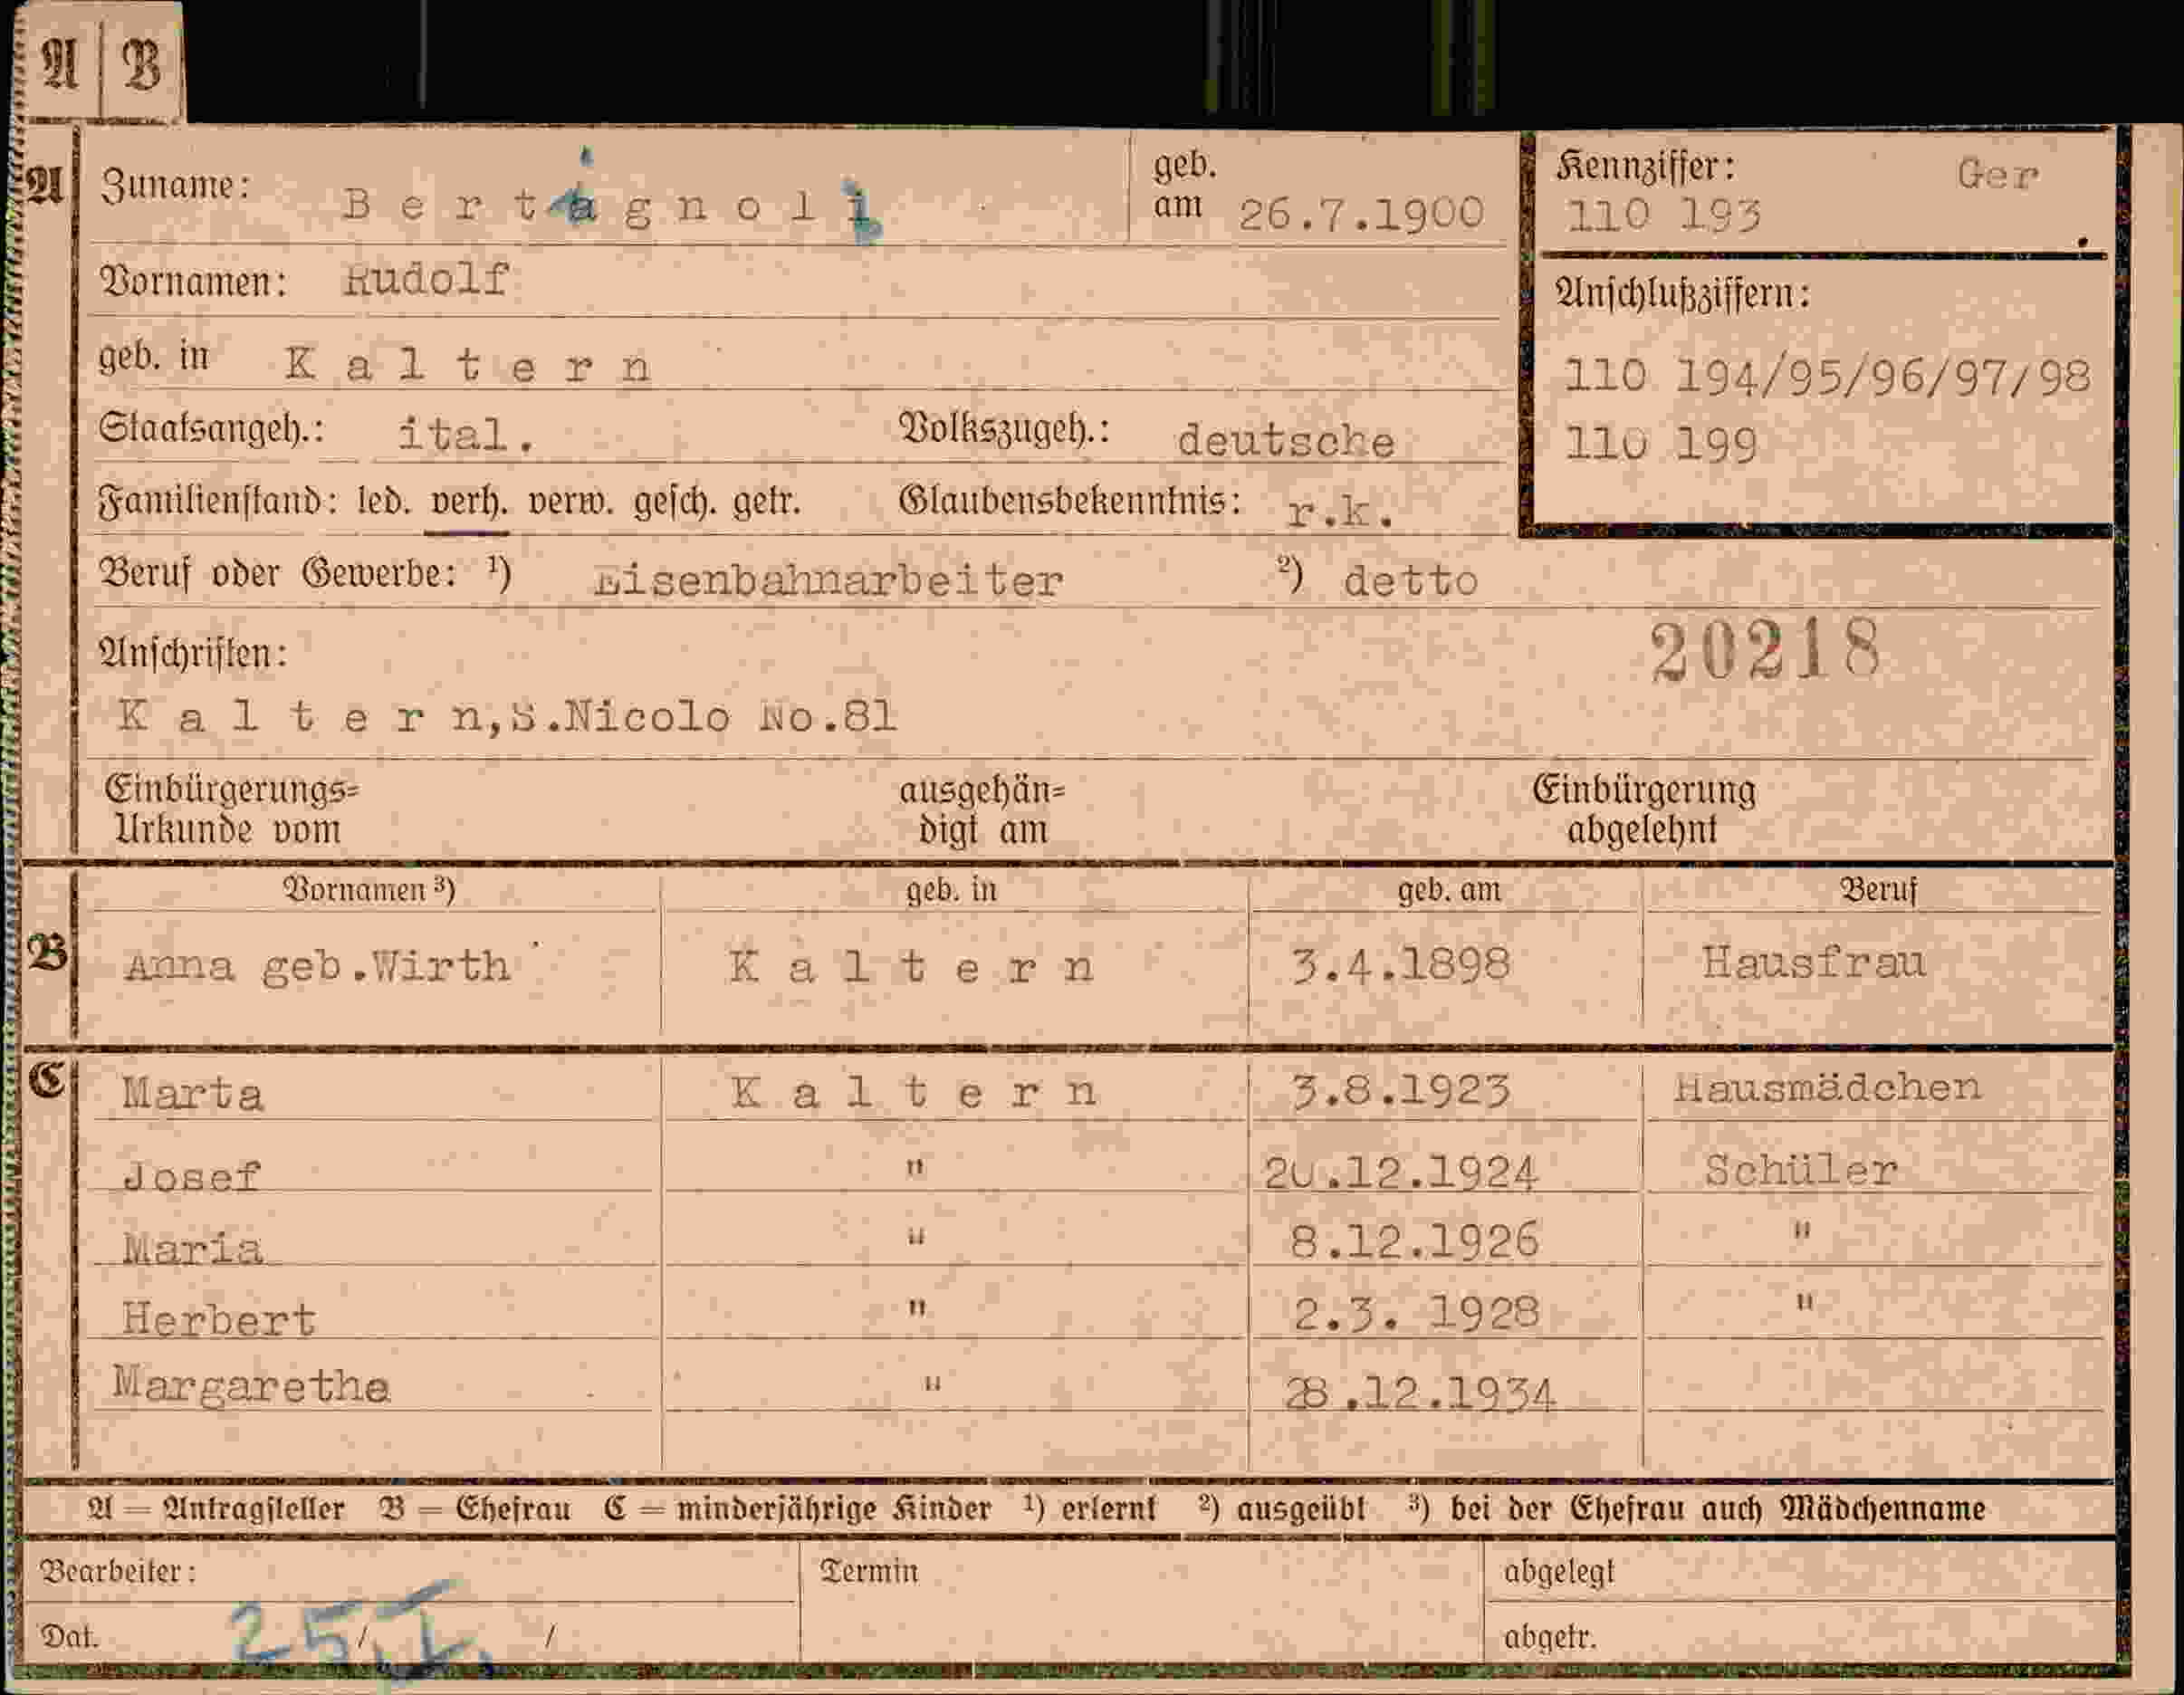 A B
A Zuname: Bertagnoli geb. am 26.7.1900
Kennziffer: Ger
110 193
Vornamen: Rudolf
Anschlußziffern:
geb. in Kaltern
110 194/95/96/97/98
Staatsangeh.: ital. Volkszugeh.: deutsche
110 199
Familienstand: led. verh. verw. gesch. getr. Glaubensbekenntnis: r.k.
Beruf oder Gewerbe: ¹) Eisenbahnarbeiter ²) detto
20218
Anschriften:
Kaltern,S.Nicolo No.81
Einbürgerungs=
Urkunde vom
ausgehän=
digt am
Einbürgerung
abgelehnt
Vornamen ³) geb. in geb. am Beruf
B Anna geb.Wirth Kaltern 3.4.1898 Hausfrau
C Marta Kaltern 3.8.1923 Hausmädchen
Josef " 20.12.1924 Schüler
Maria " 8.12.1926 "
Herbert " 2.3. 1928 "
Margarethe " 28.12.1934
A = Antragsteller B = Ehefrau C = minderjährige Kinder ¹) erlernt ²) ausgeübt ³) bei der Ehefrau auch Mädchenname
Bearbeiter: Termin abgelegt
Dat. 25/ / abgetr.